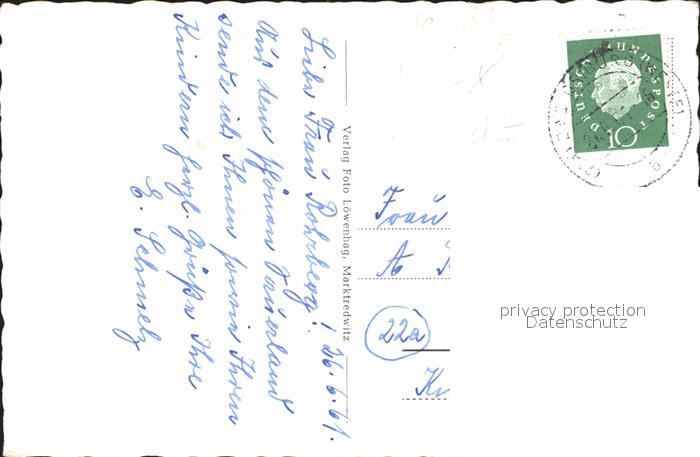 Liebe Frau Rohrberg!
26.6.61.
Aus dem schönen Sauerland
sende ich Ihnen sowie Ihren
Kindern herzl. Grüße Ihre
E. Schmelz
Verlag Foto Löwenhag, Marktredwitz
DEUTSCHE BUNDESPOST
10
Frau
A
22a
privacy protection
Datenschutz